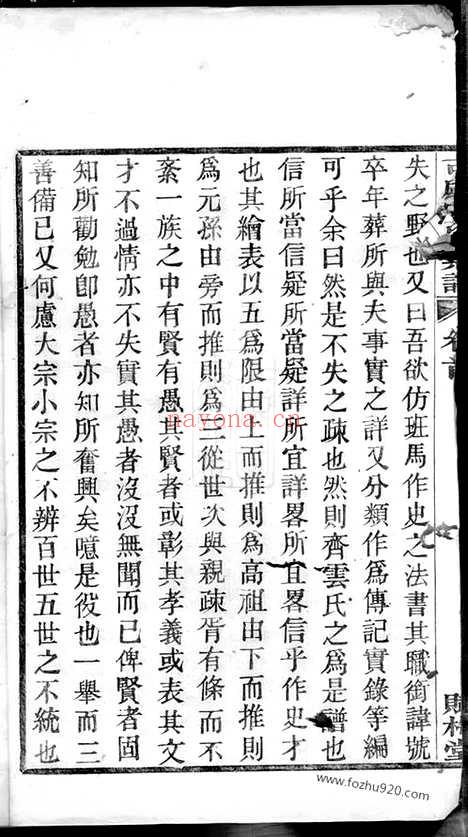 失之野也又曰吾欲仿班馬作史之法書其職銜諱號
卒年葬所與夫事實之詳又分類作爲傳記實錄等編
可乎余曰然是不失之疎也然則齊雲氏之爲是譜也
信所當信疑所當疑詳所宜詳畧所宜畧信乎作史才
也其繪表以五爲限由上而推則爲高祖由下而推則
爲元孫由旁而推則爲三從世次與親疎胥有條而不
紊一族之中有賢有愚其賢者或彰其孝義或表其文
才不過情亦不失實其愚者沒沒無聞而已俾賢者固
知所勸勉卽愚者亦知所奮興矣噫是役也一舉而三
善備已又何慮大宗小宗之不辨百世五世之不統也
卷首
nayona.cn
www.fozhu920.com